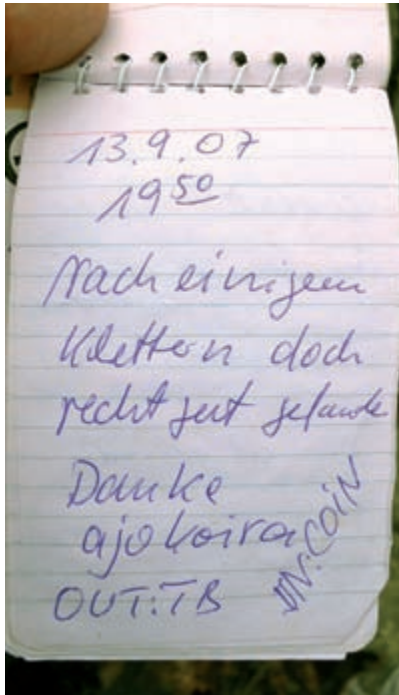 13.9.07
19 50
Nach einigem
Klettern doch
recht gut gefunden
Danke
ajokoira
OUT:TB
IN:COIN